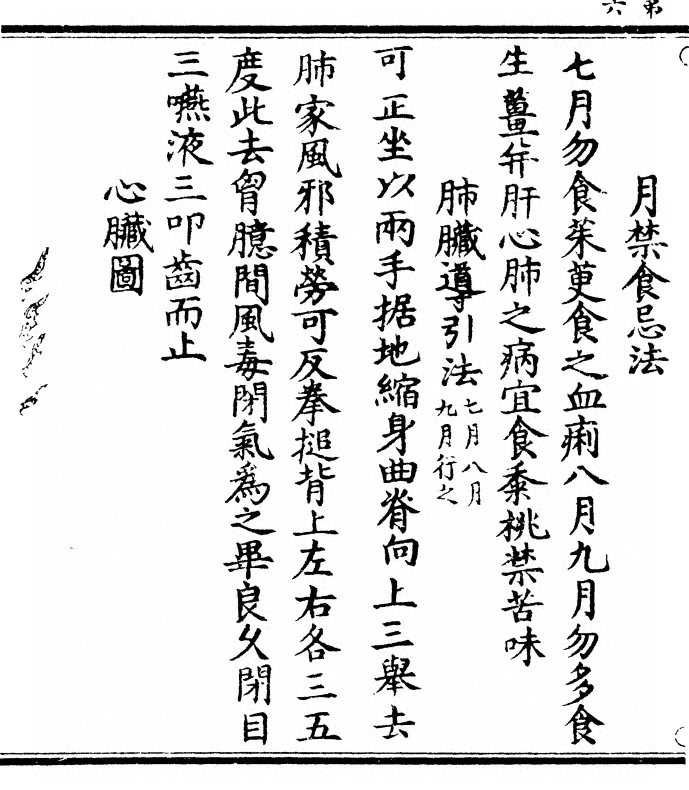 第六
月禁食忌法
七月勿食茱萸食之血痢八月九月勿多食
生薑并肝心肺之病宜食黍桃禁苦味
肺臟導引法七月八月九月行之
可正坐以兩手据地縮身曲脊向上三舉去
肺家風邪積勞可反拳搥背上左右各三五
度此去胷臆間風毒閉氣爲之畢良久閉目
三嚥液三叩齒而止
心臟圖